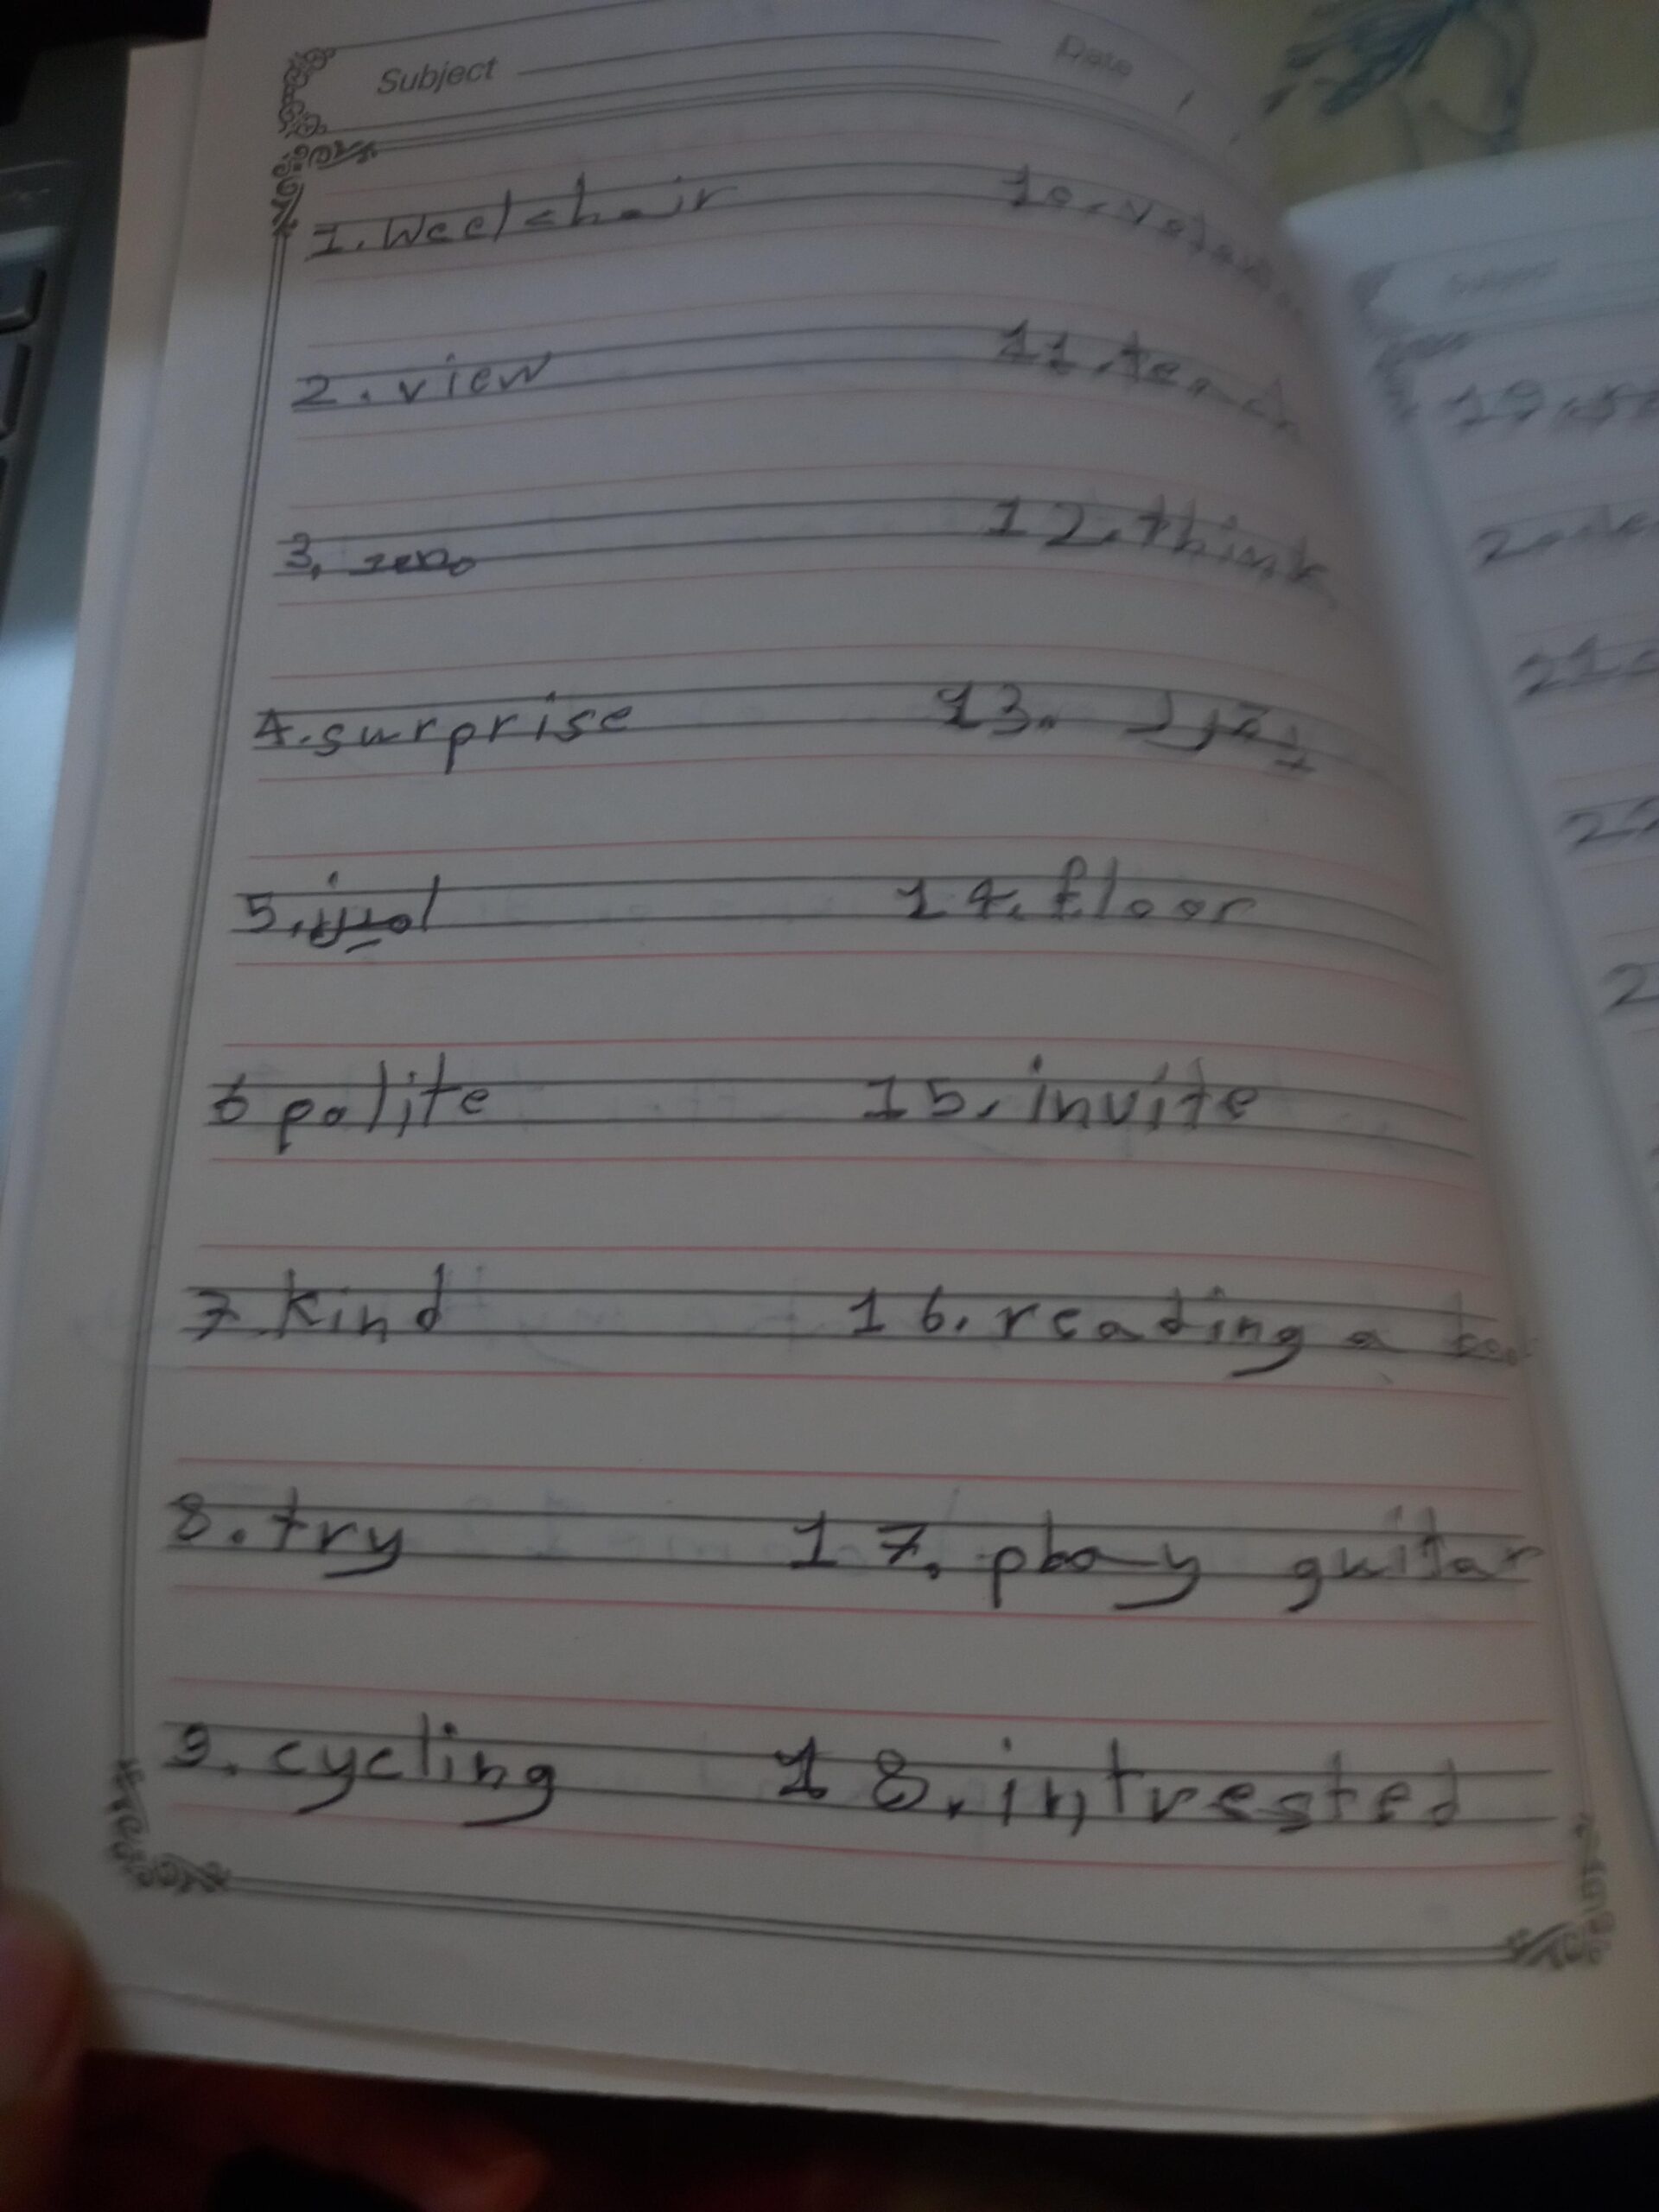 Subject
Date
1. Weelchair
2. view
3. zero
4. surprise
5.
6 polite
7 kind
8. try
9. cycling
10.
11. teach
12. think
13.
14. floor
15. invite
16. reading a
17. play guitar
18. intrested
Subject
19.
20.
21
22
2